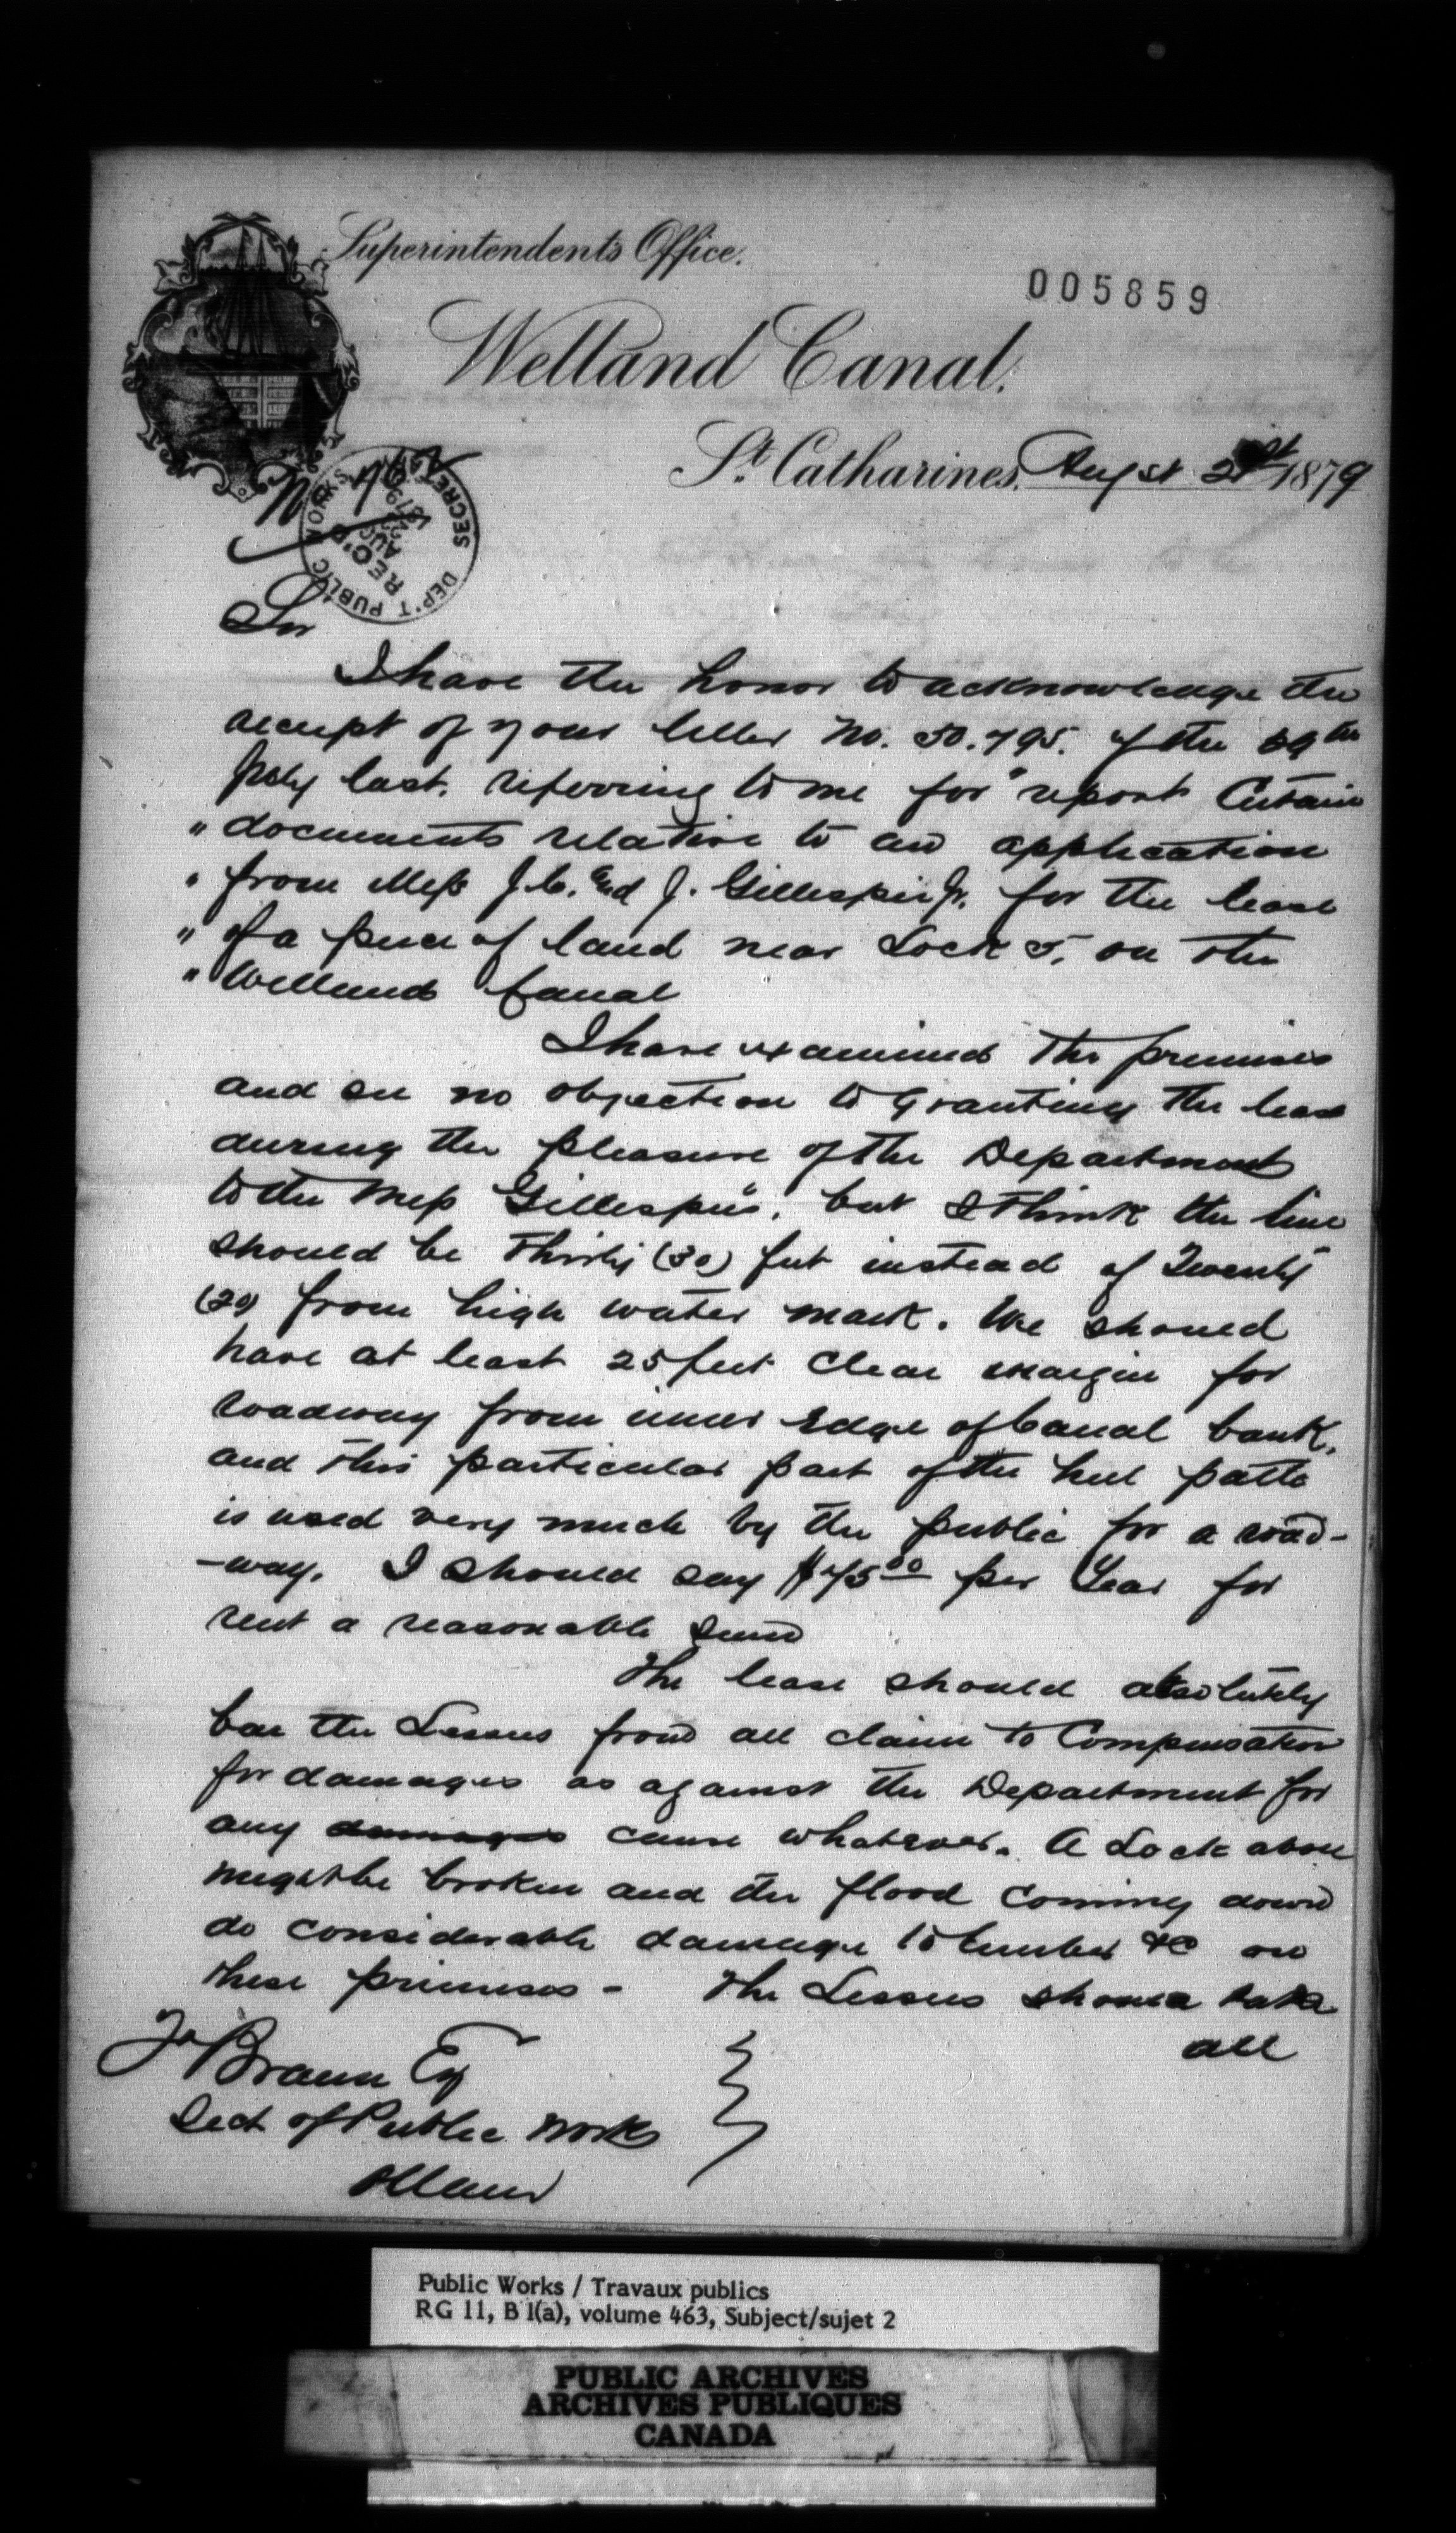 Superintendent's Office.
005859
Welland Canal.
St. Catharines, Augst 21st 1879
DEP'T PUBLIC WORKS SECRETARY
REC'D
AUG
Sir
I have the honor to acknowledge the
receipt of your letter No. 50.795. of the 29th
July last, referring to me for "report Certain
" documents relative to an application
" from Mess J.C. and J. Gillespie Jr. for the lease
" of a piece of land near Lock 5, on the
" Welland Canal
I have examined the premises
and see no objection to granting the lease
during the pleasure of the Department
to the Mess Gillespie's, but I think the line
should be Thirty (30) feet instead of Twenty
(20) from high water mark. We should
have at least 25 feet clear margin for
roadway from inner Edge of Canal bank,
and this particular part of the heel path
is used very much by the public for a road-
-way. I should say $75.00 per Year for
rent a reasonable sum
The lease should absolutely
bar the Lessees from all claim to Compensation
for damages as against the Department for
any damages cause whatever. A Lock above
might be broken and the flood coming down
do considerable damage to lumber &c on
these premises - The Lessees should take
all
Braun Esq
Sect of Public Works
Ottawa
Public Works / Travaux publics
RG 11, B 1(a), volume 463, Subject/sujet 2
PUBLIC ARCHIVES
ARCHIVES PUBLIQUES
CANADA